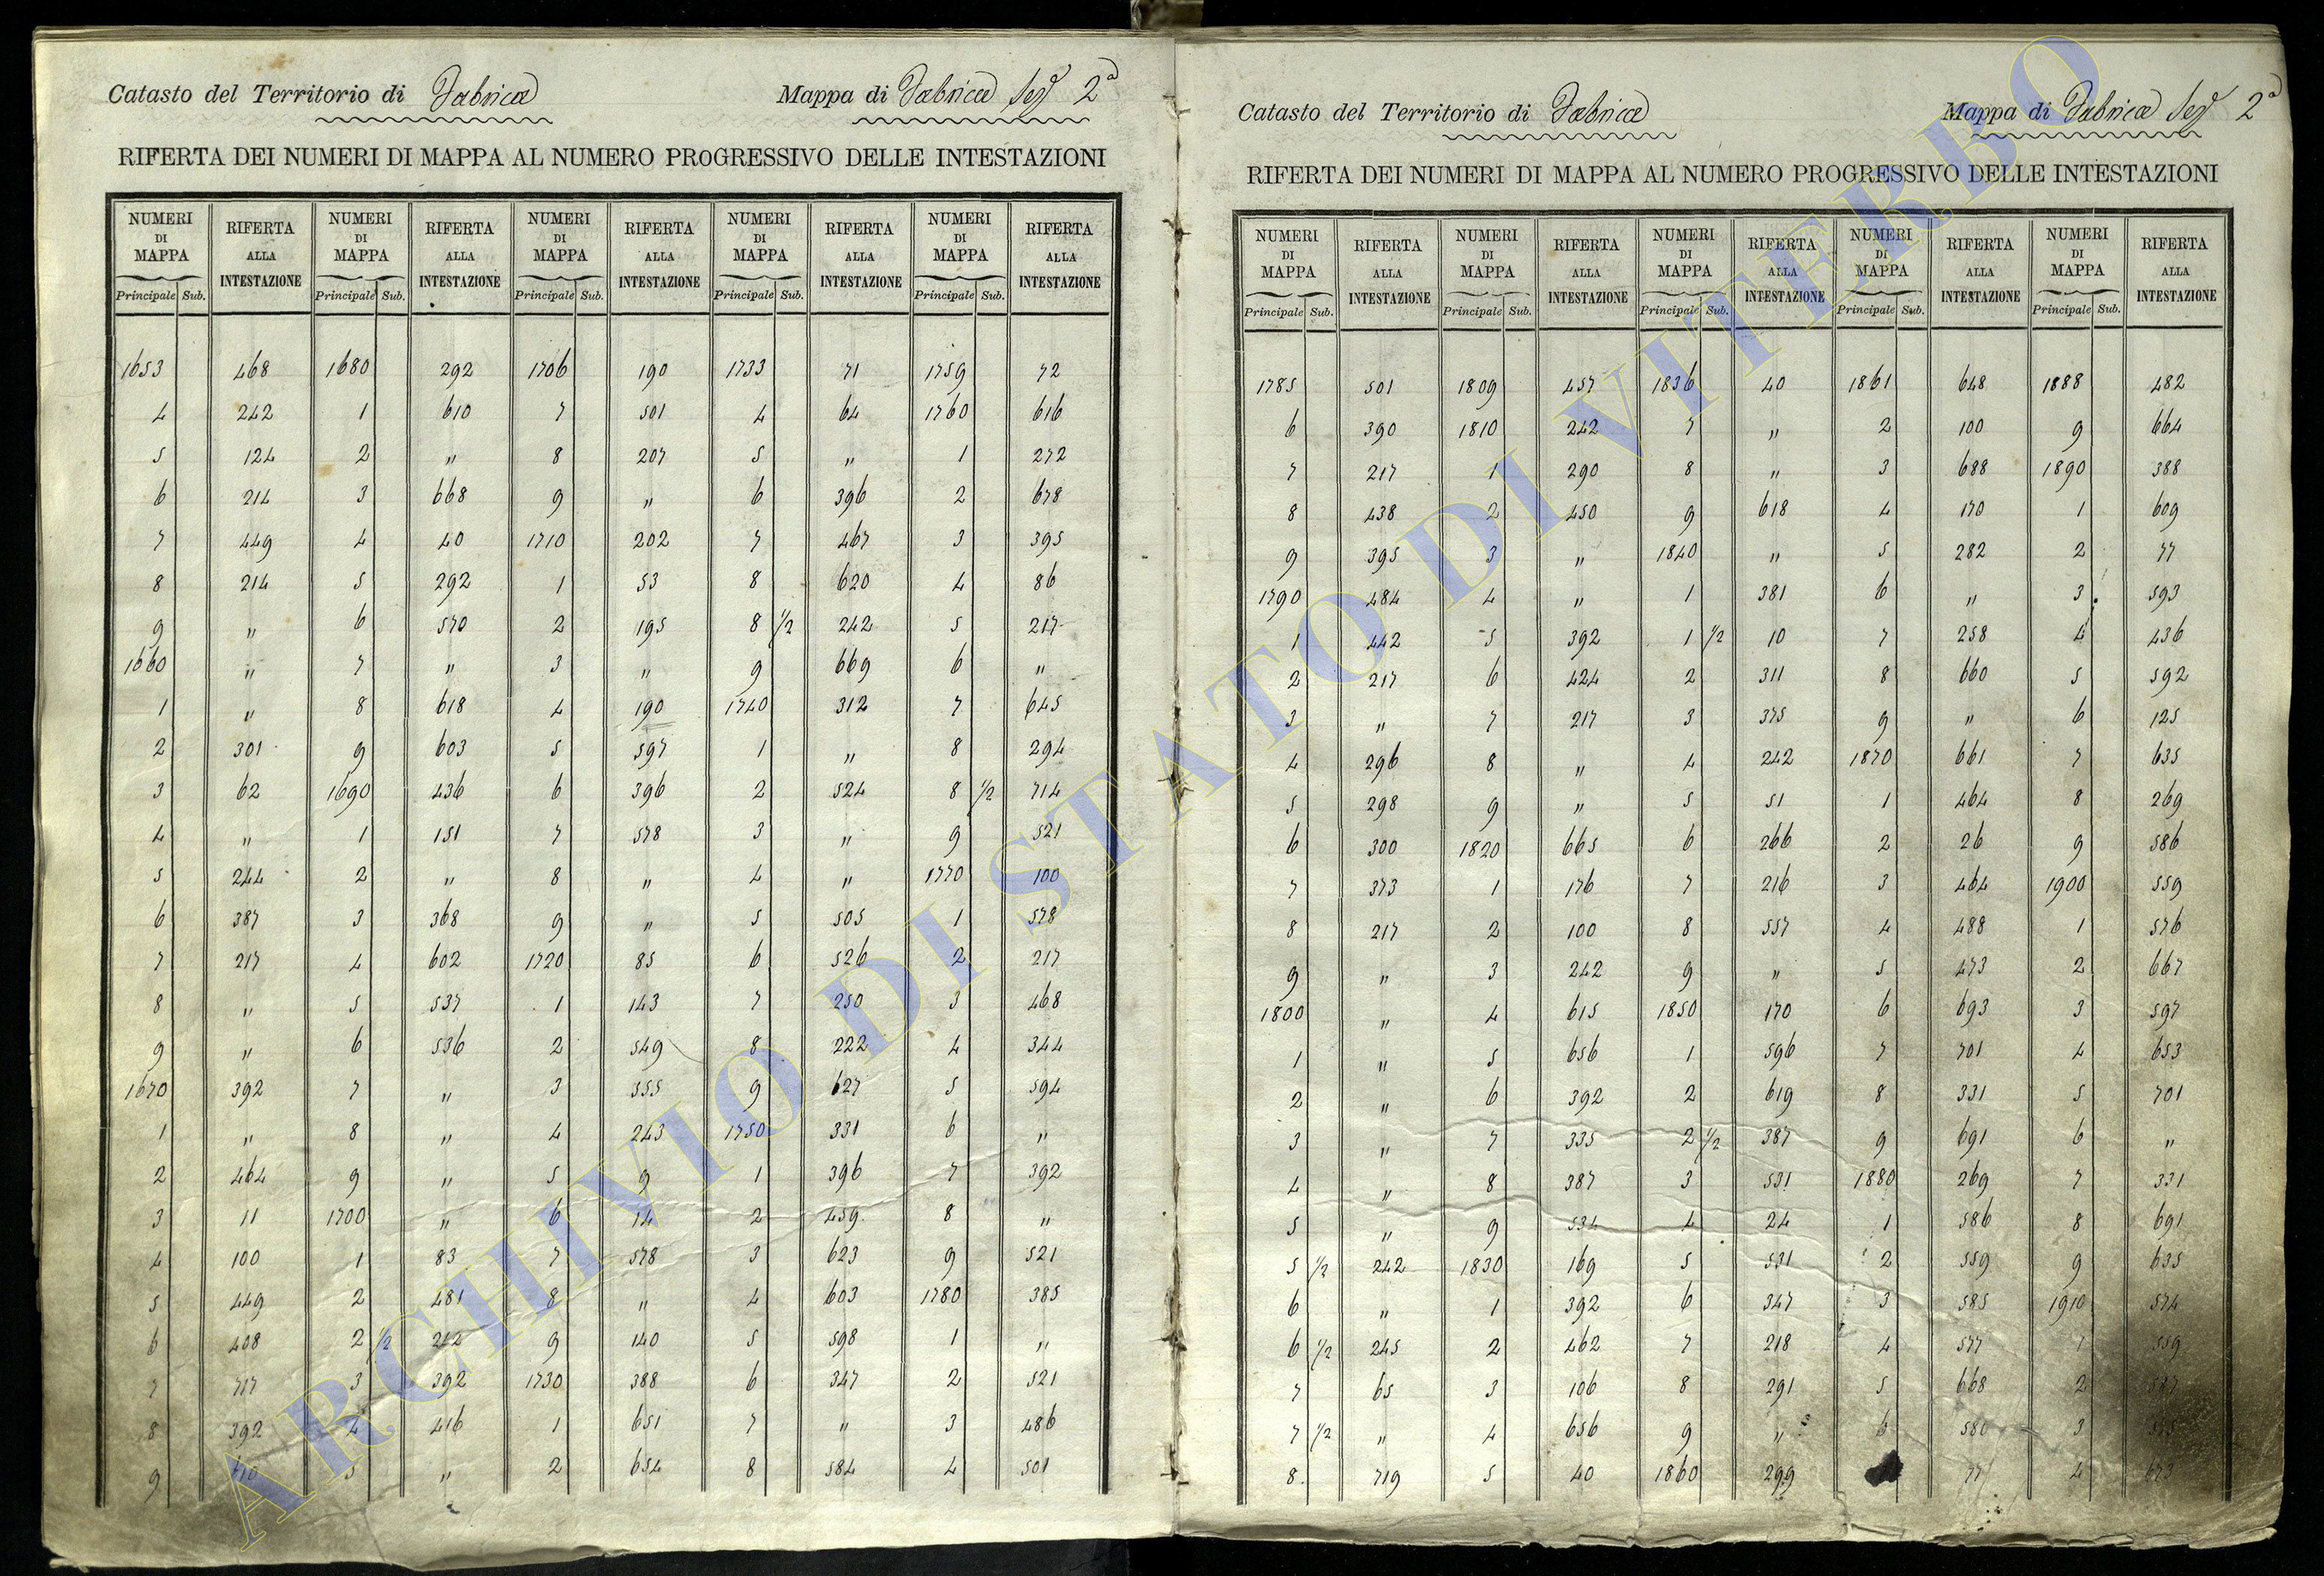 Catasto del Territorio di Fabrica Mappa di Fabrica Sez 2ª
RIFERTA DEI NUMERI DI MAPPA AL NUMERO PROGRESSIVO DELLE INTESTAZIONI
NUMERI DI MAPPA RIFERTA ALLA INTESTAZIONE NUMERI DI MAPPA RIFERTA ALLA INTESTAZIONE NUMERI DI MAPPA RIFERTA ALLA INTESTAZIONE NUMERI DI MAPPA RIFERTA ALLA INTESTAZIONE NUMERI DI MAPPA RIFERTA ALLA INTESTAZIONE
Principale Sub. Principale Sub. Principale Sub. Principale Sub. Principale Sub.
1653 468 1680 292 1706 190 1733 71 1759 72
4 242 1 610 7 501 4 64 1760 616
5 124 2 " 8 207 5 " 1 272
6 214 3 668 9 " 6 396 2 678
7 449 4 40 1710 202 7 467 3 395
8 214 5 292 1 53 8 620 4 86
9 " 6 570 2 195 8 1/2 242 5 217
1660 " 7 " 3 " 9 669 6 "
1 " 8 618 4 190 1740 312 7 645
2 301 9 603 5 597 1 " 8 294
3 62 1690 436 6 396 2 524 8 1/2 714
4 " 1 151 7 578 3 " 9 521
5 244 2 " 8 " 4 " 1770 100
6 387 3 368 9 " 5 505 1 578
7 217 4 602 1720 85 6 526 2 217
8 " 5 537 1 143 7 250 3 468
9 " 6 536 2 549 8 222 4 344
1670 392 7 " 3 555 9 627 5 594
1 " 8 " 4 243 1750 331 6 "
2 464 9 " 5 9 1 396 7 392
3 11 1700 " 6 14 2 459 8 "
4 100 1 83 7 578 3 623 9 521
5 449 2 481 8 " 4 603 1780 385
6 408 2 1/2 242 9 140 5 598 1 "
7 717 3 392 1730 388 6 347 2 521
8 392 4 416 1 651 7 " 3 486
9 5 " 2 654 8 584 4 501
Catasto del Territorio di Fabrica Mappa di Fabrica Sez 2ª
RIFERTA DEI NUMERI DI MAPPA AL NUMERO PROGRESSIVO DELLE INTESTAZIONI
NUMERI DI MAPPA RIFERTA ALLA INTESTAZIONE NUMERI DI MAPPA RIFERTA ALLA INTESTAZIONE NUMERI DI MAPPA RIFERTA ALLA INTESTAZIONE NUMERI DI MAPPA RIFERTA ALLA INTESTAZIONE NUMERI DI MAPPA RIFERTA ALLA INTESTAZIONE
Principale Sub. Principale Sub. Principale Sub. Principale Sub. Principale Sub.
1785 501 1809 457 1836 40 1861 648 1888 482
6 390 1810 242 7 " 2 100 9 664
7 217 1 290 8 " 3 688 1890 388
8 438 2 450 9 618 4 170 1 609
9 395 3 " 1840 " 5 282 2 77
1790 484 4 " 1 381 6 " 3 593
1 442 5 392 1 1/2 10 7 258 4 436
2 217 6 424 2 311 8 660 5 592
3 " 7 217 3 375 9 " 6 125
4 296 8 " 4 242 1870 661 7 635
5 298 9 " 5 51 1 464 8 269
6 300 1820 665 6 266 2 26 9 586
7 373 1 176 7 216 3 464 1900 559
8 217 2 100 8 557 4 488 1 576
9 " 3 242 9 " 5 473 2 667
1800 " 4 615 1850 170 6 693 3 597
1 " 5 656 1 596 7 701 4 653
2 " 6 392 2 619 8 331 5 701
3 " 7 335 2 1/2 387 9 691 6 "
4 " 8 387 3 531 1880 269 7 331
5 " 9 534 4 24 1 586 8 691
5 1/2 242 1830 169 5 531 2 559 9 635
6 " 1 392 6 347 3 585 1910 574
6 1/2 245 2 462 7 218 4 577 1 559
7 65 3 106 8 291 5 668 2
7 1/2 " 4 656 9 " 6 580 3
8 719 5 40 1860 299 77 4 673
ARCHIVIO DI STATO DI VITERBO